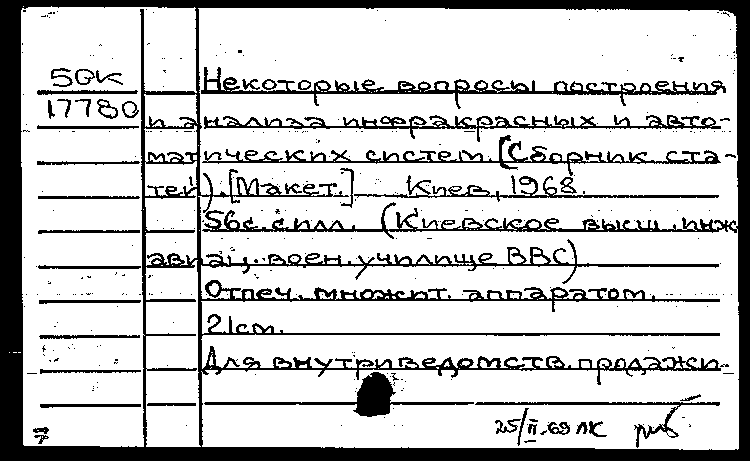 5GK Некоторые вопросы построения
17780 и анализа инфракрасных и авто-
матических систем. [Сборник ста-
тей). [Макет.] Киев, 1968.
56с. с илл. (Киевское высш. инж
авиац. воен. училище ВВС)
Отпеч. множит. аппаратом.
21см.
Для внутриведомств. продажи.
7 25/II.69 ЛК